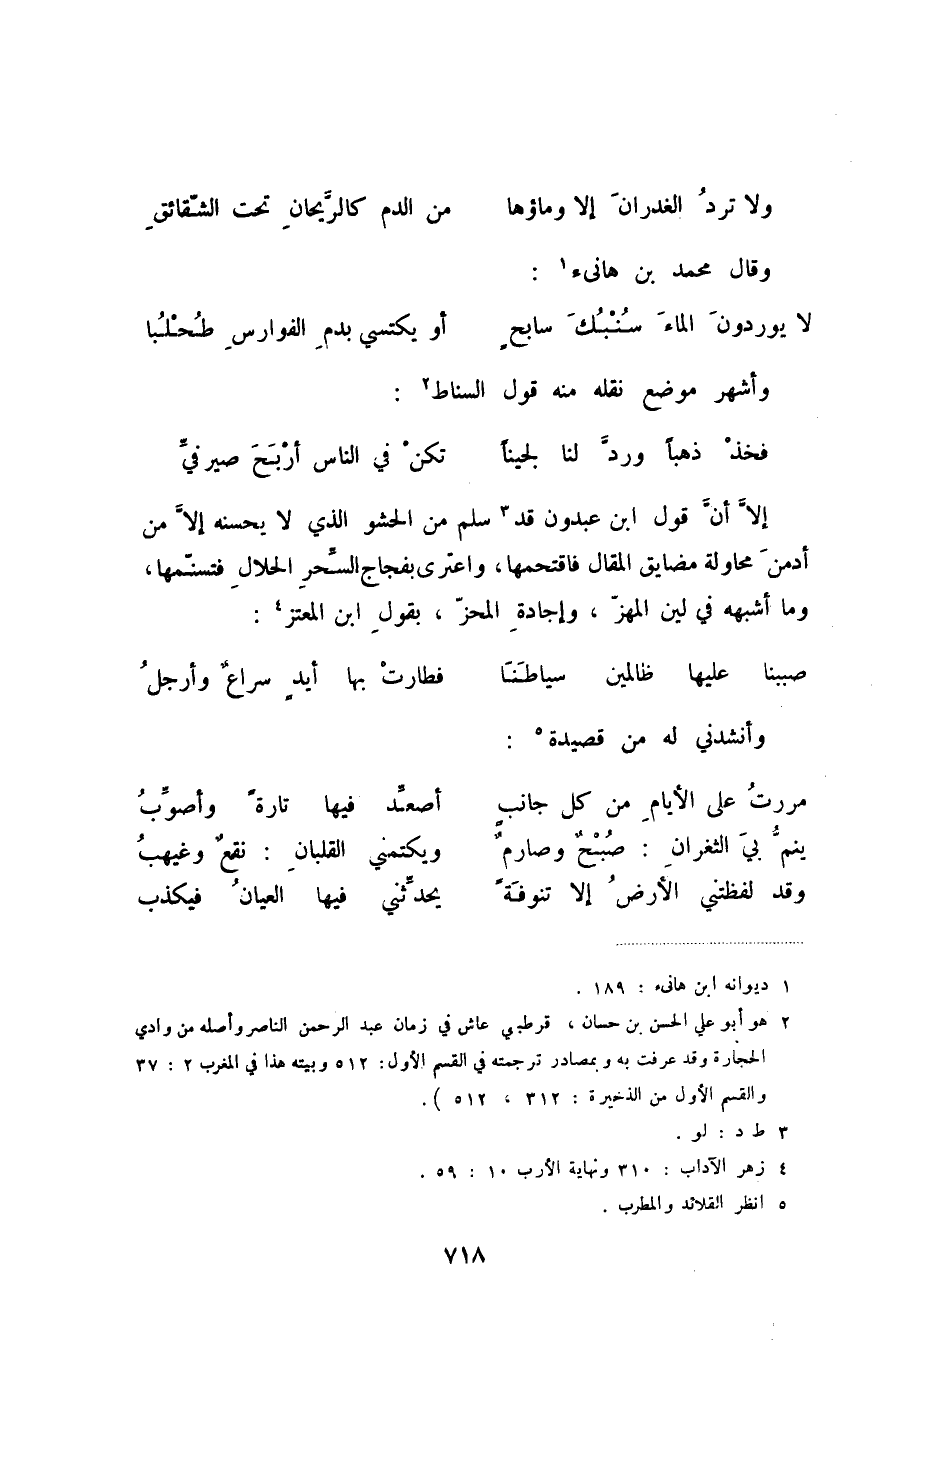 ولا تردُ الغدرانَ إلا وماؤها من الدم كالرَّيحانِ تحت الشّقائقِ
وقال محمد بن هانىء١ :
لا يوردونَ الماءَ سُنْبُكَ سابحٍ أو يكتسي بدمِ الفوارسِ طُحْلُبا
وأشهر موضع نقله منه قول السناط٢ :
فخذْ ذهباً وردَّ لنا لجيناً تكنْ في الناس أرْبَحَ صيرفيِّ
إلاَّ أنَّ قول ابن عبدون قد٣ سلم من الحشو الذي لا يحسنه إلاَّ من
أدمنَ محاولة مضايق المقال فاقتحمها، واعترى بفجاج السِّحرِ الحلالِ فتسنّمها،
وما أشبهه في لين المهزّ ، وإجادةِ المحزّ ، بقولِ ابن المعتز٤ :
صببنا عليها ظالمين سياطَنَا فطارتْ بها أيدٍ سراعٌ وأرجلُ
وأنشدني له من قصيدة٥ :
مررتُ على الأيامِ من كل جانبٍ أصعِّد فيها تارةً وأصوِّبُ
ينمُّ بيَ الثغرانِ : صُبْحٌ وصارمٌ ويكتمني القلبانِ : نقعٌ وغيهبُ
وقد لفظتني الأرضُ إلا تنوفَةً يحدِّثني فيها العيانُ فيكذب
١ ديوانه ابن هانىء : ١٨٩ .
٢ هو أبو علي الحسن بن حسان ، قرطبي عاش في زمان عبد الرحمن الناصر وأصله من وادي
الحجارة وقد عرفت به وبمصادر ترجمته في القسم الأول: ٥١٢ وبيته هذا في المغرب ٢ : ٣٧
والقسم الأول من الذخيرة : ٣١٢ ، ٥١٢ ) .
٣ ط د : لو .
٤ زهر الآداب : ٣١٠ ونهاية الأرب ١٠ : ٥٩ .
٥ انظر القلائد والمطرب .
٧١٨